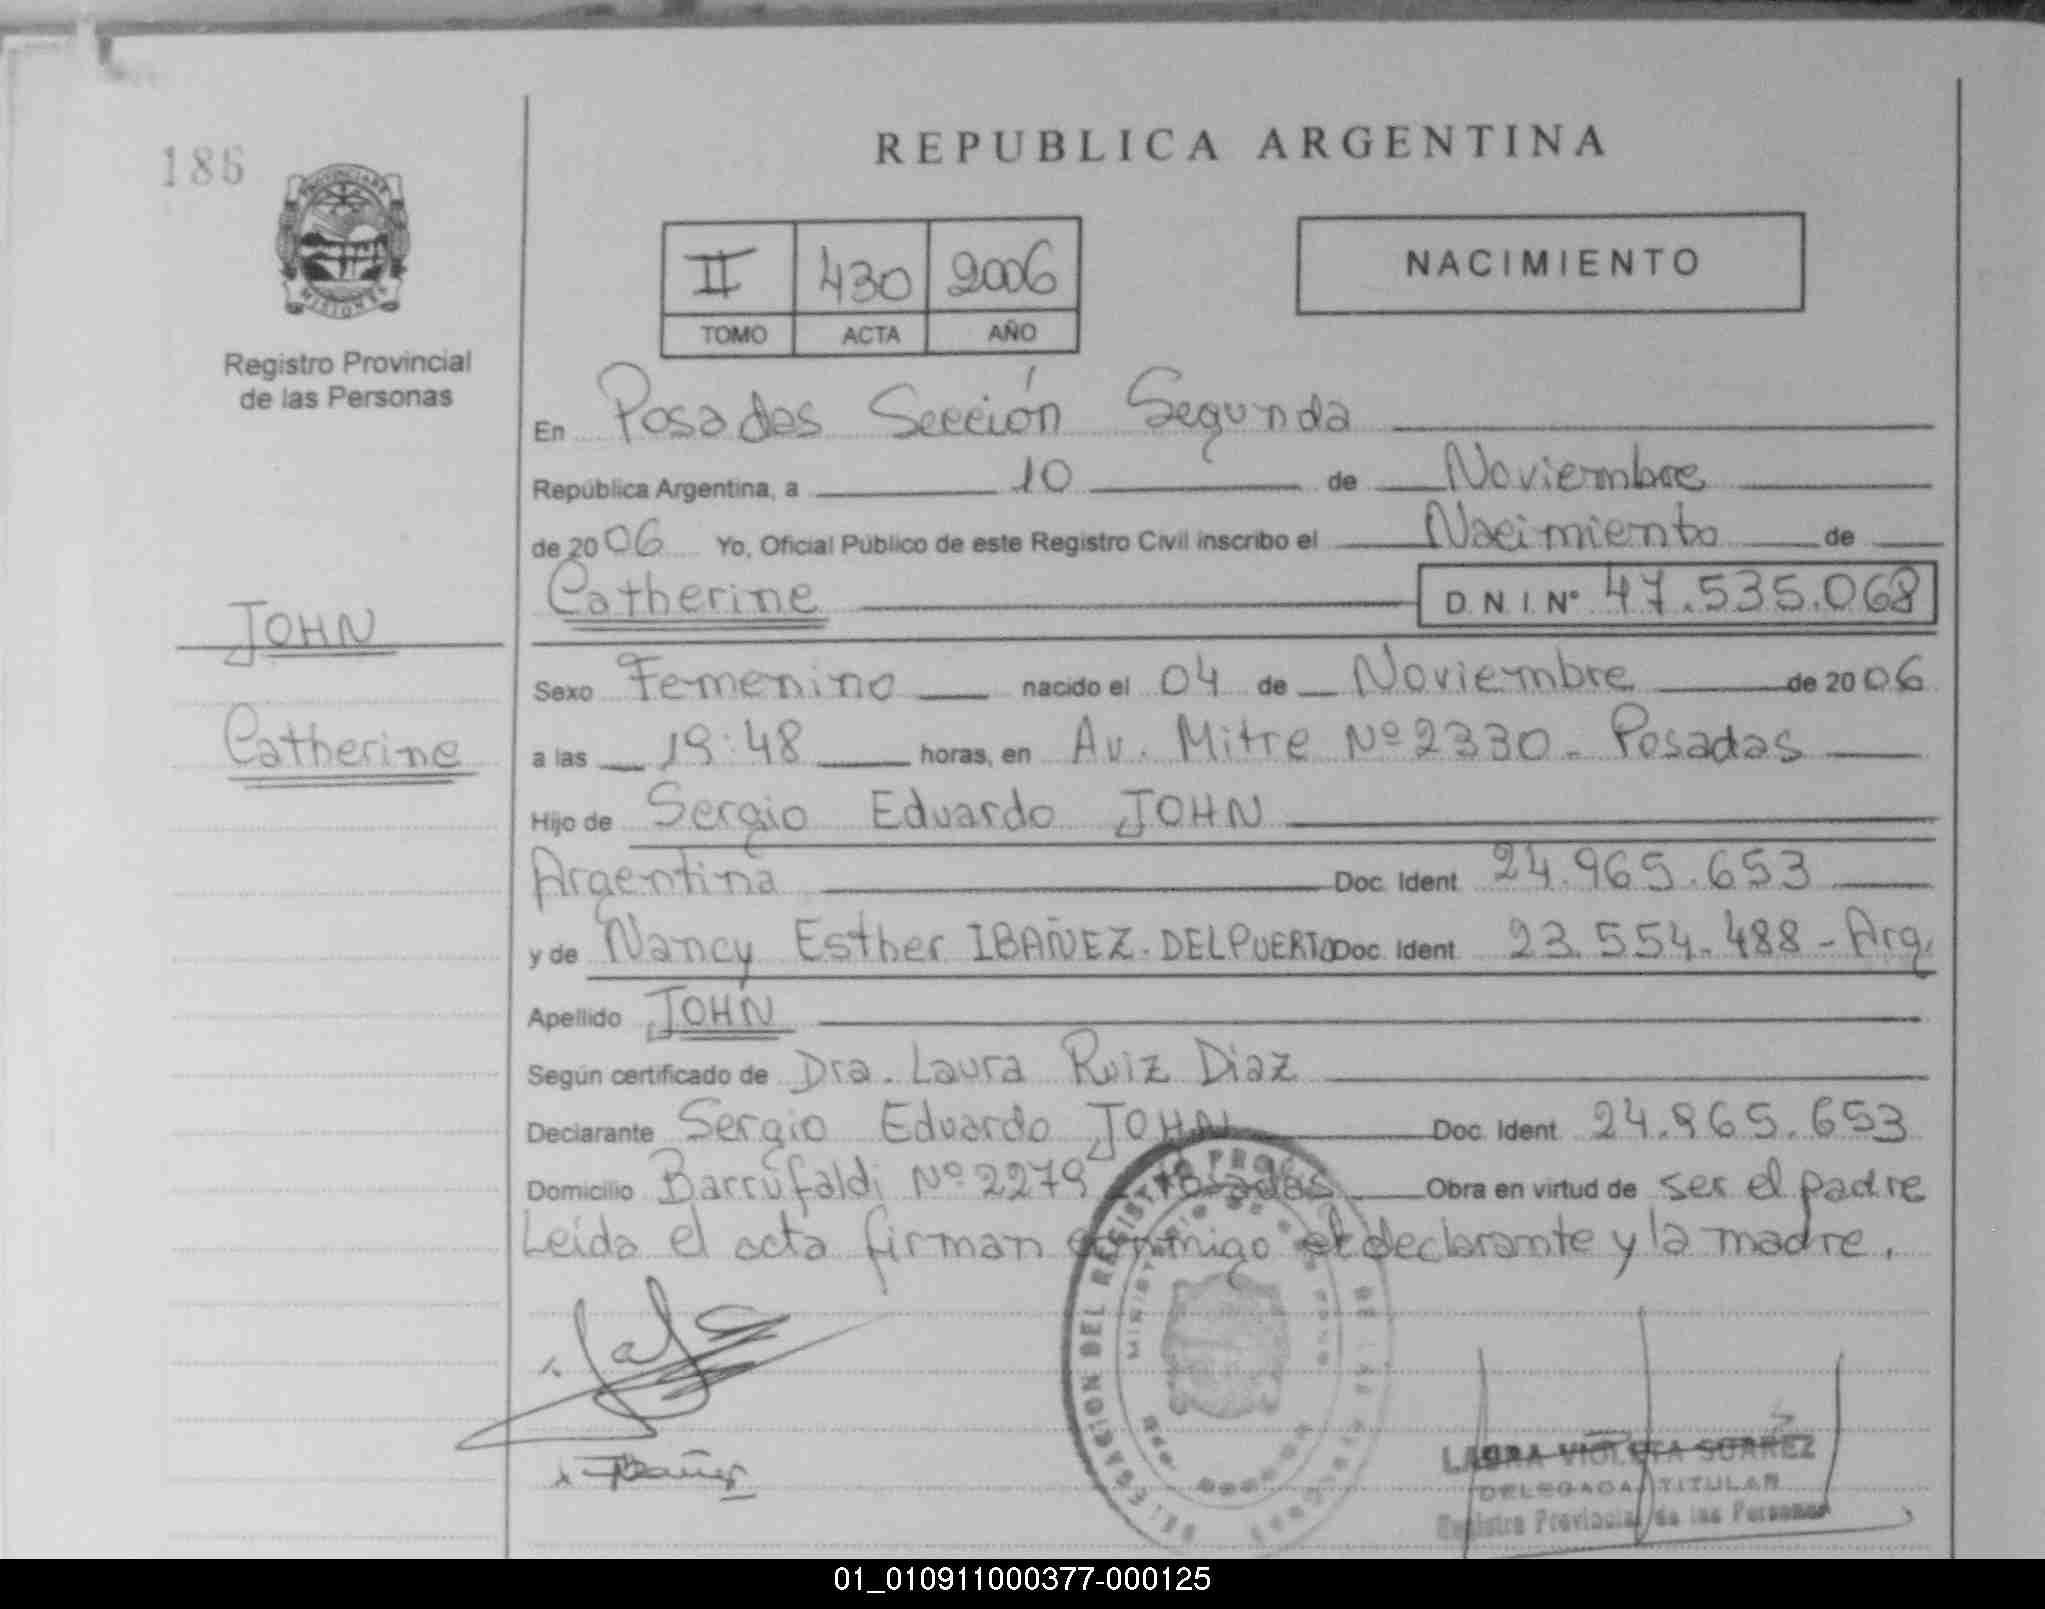 186
PROVINCIA DE
MISIONES
Registro Provincial
de las Personas
JOHN
Catherine
REPUBLICA ARGENTINA
II 430 2006
TOMO ACTA AÑO
NACIMIENTO
En Posadas Sección Segunda
República Argentina, a 10 de Noviembre
de 2006 Yo, Oficial Público de este Registro Civil inscribo el Nacimiento de
Catherine D.N.I. Nº 47.535.068
Sexo Femenino nacido el 04 de Noviembre de 2006
a las 19:48 horas, en Av. Mitre Nº 2330 - Posadas
Hijo de Sergio Eduardo JOHN
Argentina Doc. Ident 24.965.653
y de Nancy Esther IBAÑEZ. DELPUERTO Doc. Ident 23.554.488 - Arg.
Apellido JOHN
Según certificado de Dra. Laura Ruiz Diaz
Declarante Sergio Eduardo JOHN Doc. Ident 24.965.653
Domicilio Barrufaldi Nº 2279 - Posadas Obra en virtud de ser el padre
Leída el acta firman conmigo el declarante y la madre.
DELEGACION DEL REGISTRO PROV DE LAS PERSONAS
MINISTERIO DE GOBIERNO
Ibañez
LAURA VIOLETA SUAREZ
DELEGADA TITULAR
Registro Provincial de las Personas
01_010911000377-000125